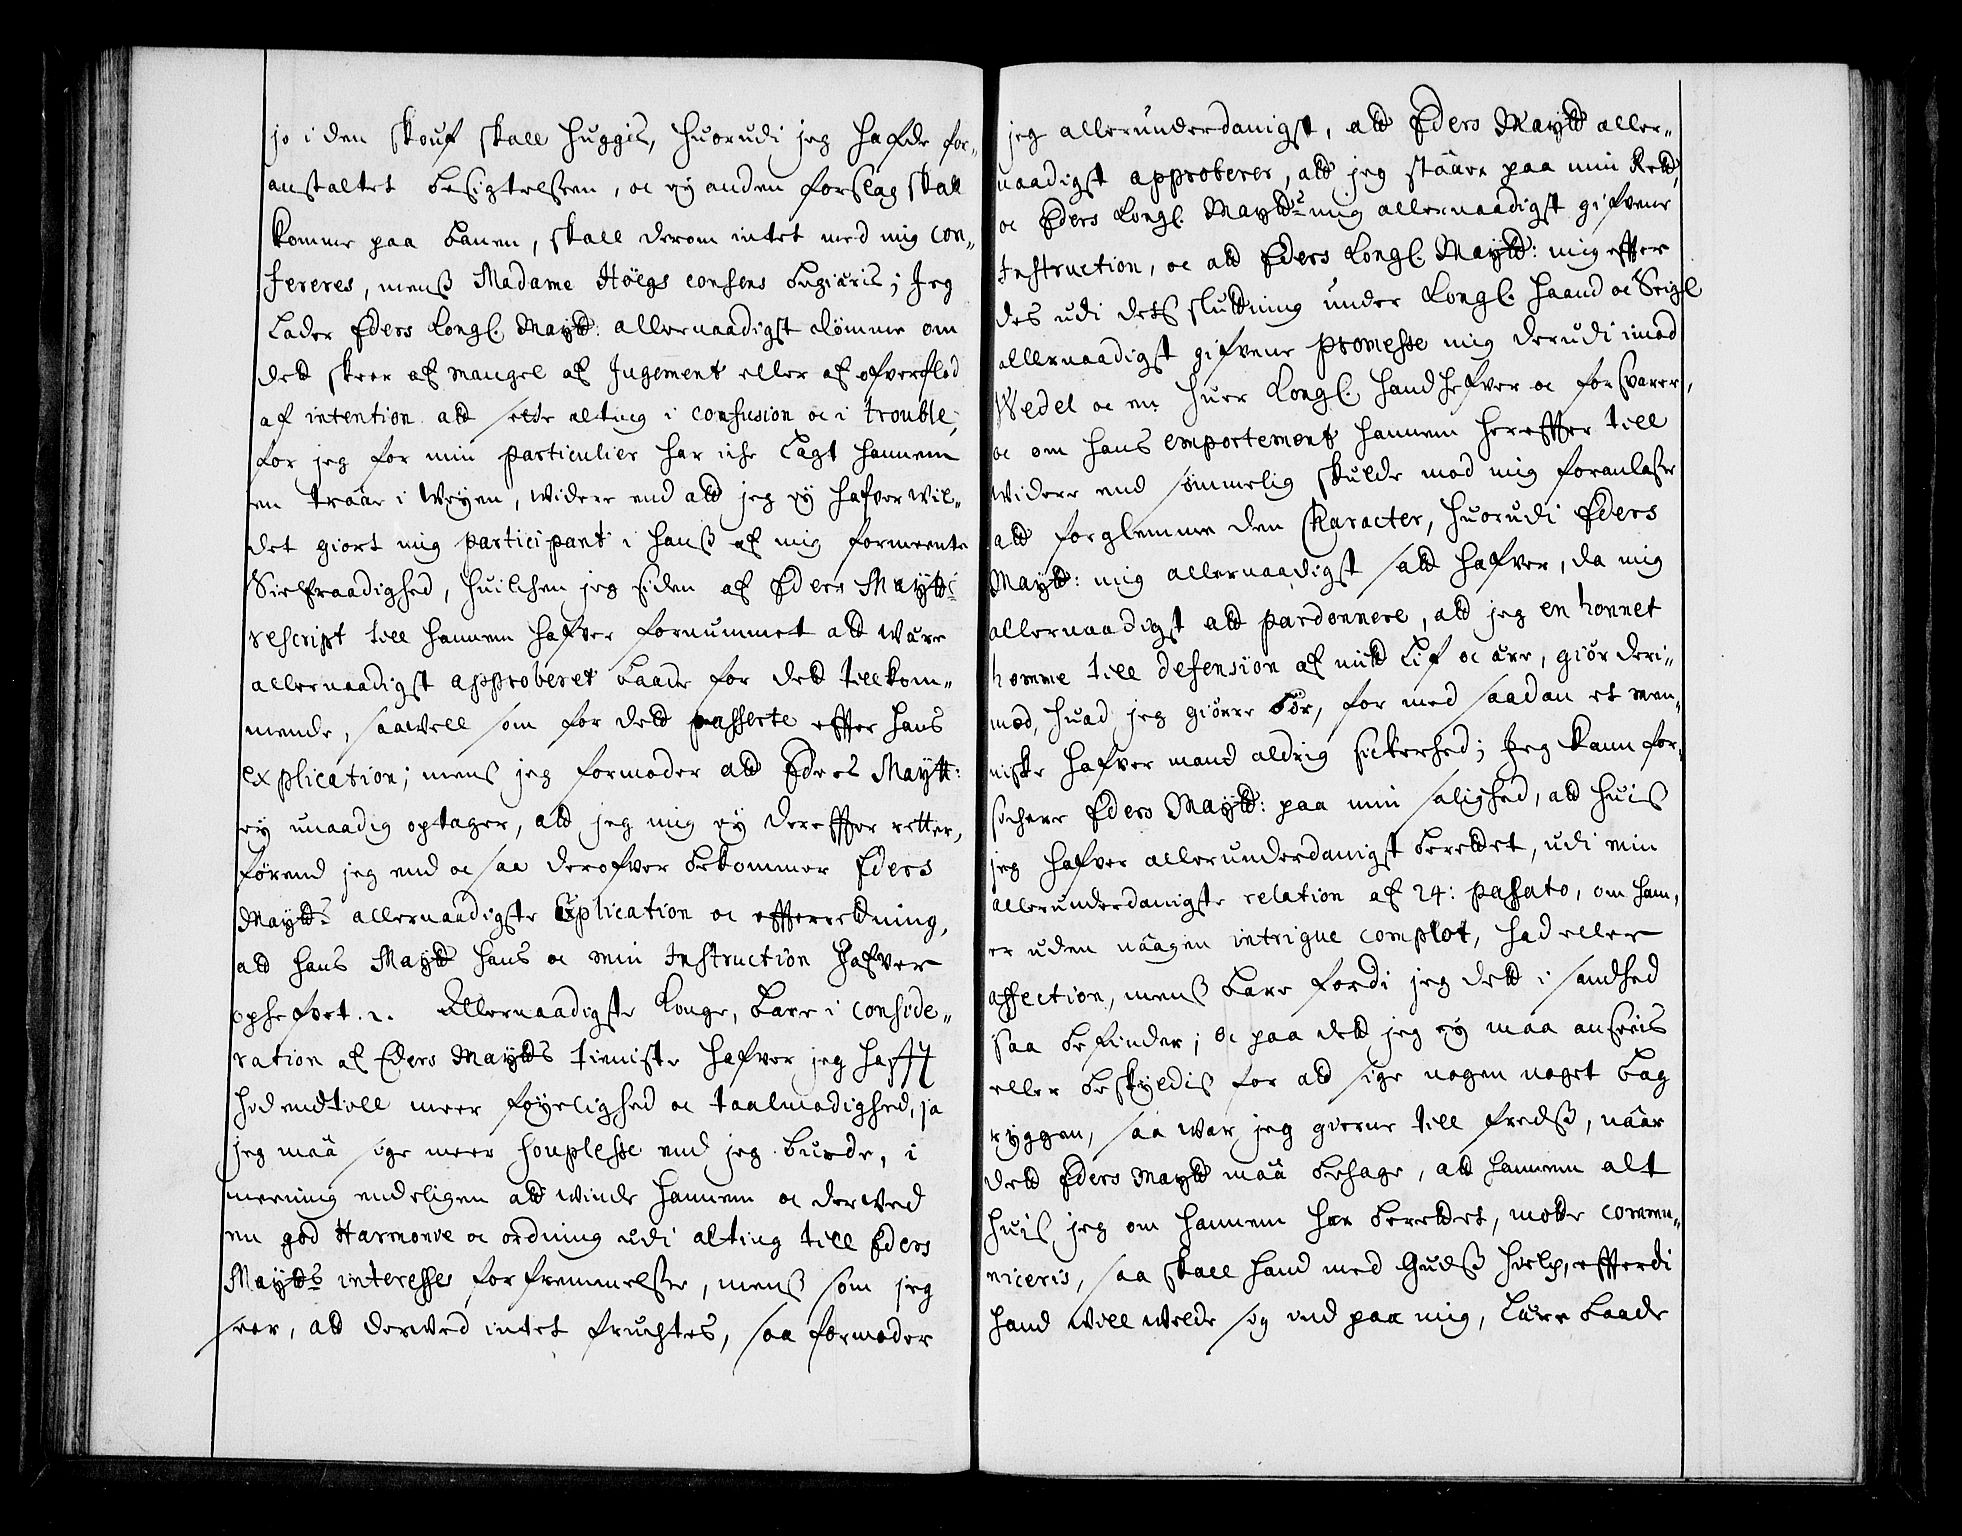 jo i den skouf skall huggis, huorudi jeg hafde for„
anstaltet besigtelssen, oc ey anden forslag skall
komme paa banen, skall derom intet med mig con„
fereres, menß Madame Höegs consens begiæris; Jeg
lader Eders Kongl. Maytt: allernaadigst dømme om
dett skeer af mangel af Jugement eller af ofverflod
af intention att sette alting i confusion oc i trouble,
for jeg for min particulier har iche lagt hannem
en traae i Weyen, widere end att jeg ey hafver wil„
det giort mig participant i hanß af mig formeente
Sielfraadighed, huilchen jeg siden af Eders Maytts
rescript till hannem hafver fornummet att være
allernaadigst approberet baade for dett tillkom„
mende, saawell som for dett passerte effter hans
explication; mens jeg formoder att Eders Maytt:
ey unaadig optager, att jeg mig ey dereffter retter,
førend jeg end oc saa derofver bekommer Eders
Maytts allernaadigste Explication oc effterretning,
att hans Maytt hans oc min Instruction hafver
ophefvet. 2. Allernaadigste Konge, bare i conside„
ration af Eders Maytts tieniste hafver jeg hafft
hid indtill meer føyelighed oc taalmodighed, ja
jeg maa sige meer souplesse end jeg burde, i
meening endeligen att winde hannem oc derved
en god Harmonie oc ordning udi alting till Eders
Maytts interesses forfremmelsse, menß som jeg
seer, att derved intet fruchtes, saa formoder
jeg allerunderdanigst, att Eders Maytt aller„
naadigst approberer, att jeg staaer paa min Rett,
oc Eders Kongl. Maytts mig allernaadigst gifvene
Instruction, oc att Eders Kongl. Maytt: mig effter
des udi dets sluttning under Kongl. haand oc Seigl
allernaadigst gifvene promesse mig derudi imod
Wedel oc en huer Kongl. handhefver oc forsvarer,
oc om hans emportement hannem hereffter till
widere end sømmelig skulde mod mig foranlasse
att forglemme den Character, huorudi Eders
Maytt: mig allernaadigst satt hafver, da mig
allernaadigst att pardonnere, att jeg en honnet
homme till defension af mitt lif oc ære, giør deri„
mod, huad jeg giørre bør, for med saadan et men„
niske hafver mand aldrig sickerhed; Jeg kann for„
sichere Eders Maytt: paa min salighed, att huis
jeg hafver allerunderdanigst berettet, udi min
allerunderdanigste relation af 24: passato, om ham,
er uden naagen intrigue complot, had eller
affection, menß bare fordi jeg dett i sandhed
saa befinder; oc paa dett jeg ey maa anseeis
eller beskyldiß for att sige nogen noget bag
ryggen, saa war jeg gierne till fredß, naar
dett Eders Maytt maa behage, att hannem alt
huis jeg om hannem har berettet, motte commu„
niceris, saa skall hand med Gudß hielp, effterdi
hand will welde sig ind paa mig, lære baade